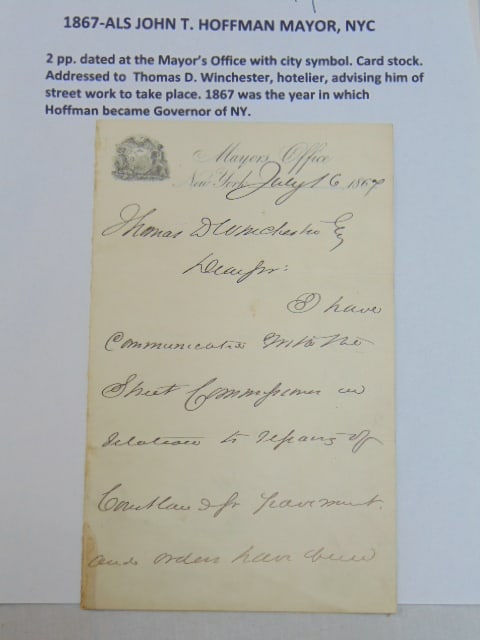 1867-ALS JOHN T. HOFFMAN MAYOR, NYC
2 pp. dated at the Mayor's Office with city symbol. Card stock.
Addressed to Thomas D. Winchester, hotelier, advising him of
street work to take place. 1867 was the year in which
Hoffman became Governor of NY.
Mayor's Office
New York July 16 1867
Thomas D Winchester Esq
Dear Sir:
I have
Communicated with the
Street Commissioner in
relation to repairs of
Courtlandt St pavement.
and orders have been